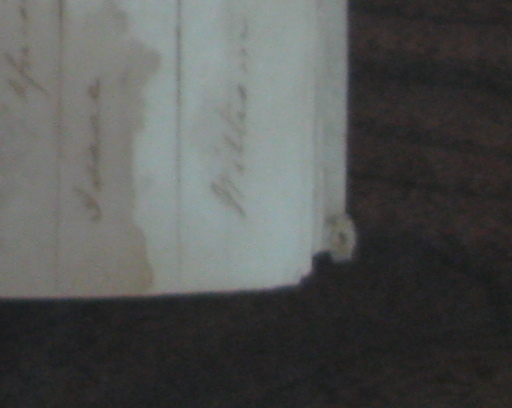 Isaac
William